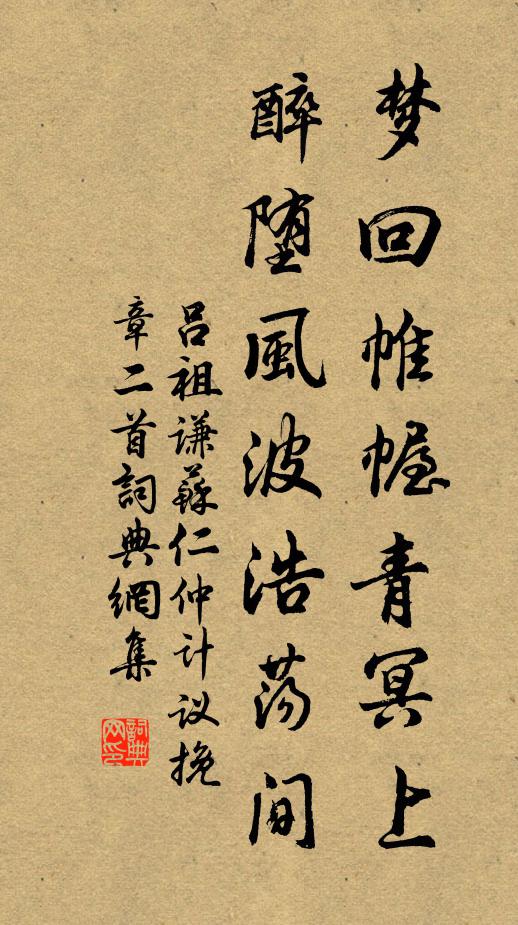 梦回帷幄青冥上
醉堕風波浩荡间
吕祖谦蘇仁仲计议挽
章二首詞典網集
詞典
网印